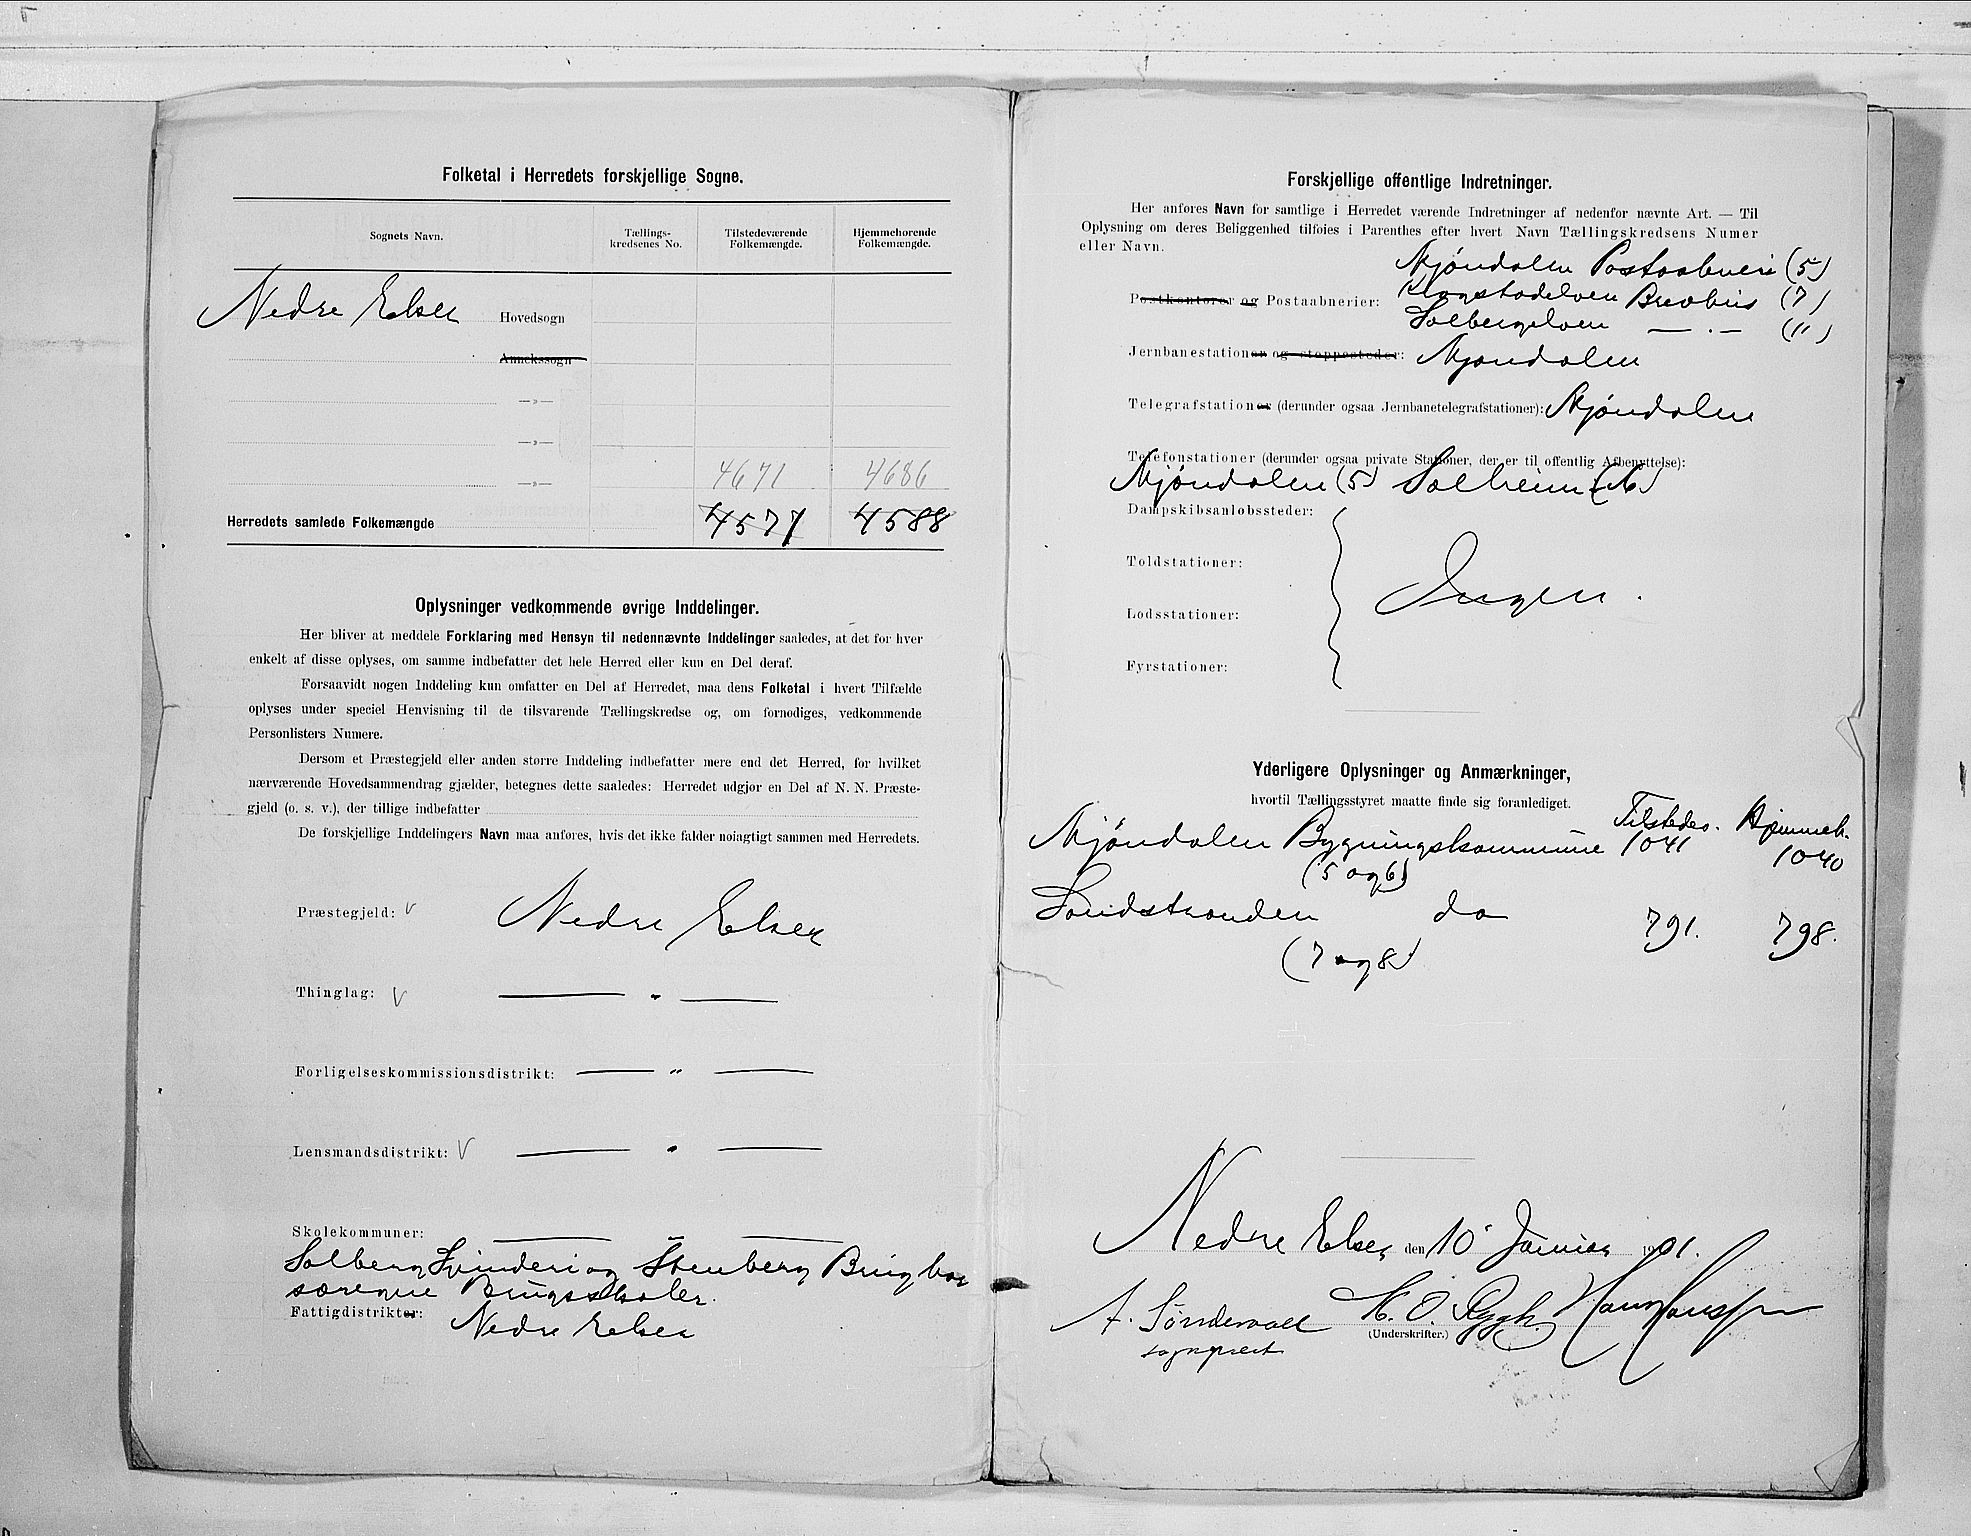 Folketal i Herredets forskjellige Sogne.
Sognets Navn. Tællings-kredsenes No. Tilstedeværende Folkemængde. Hjemmehørende Folkemængde.
Nedre Eker Hovedsogn
Annekssogn
—„—
—„—
—„— 4671 4686
Herredets samlede Folkemængde 4577 4588
Oplysninger vedkommende øvrige Inddelinger.
Her bliver at meddele Forklaring med Hensyn til nedennævnte Inddelinger saaledes, at det for hver
enkelt af disse oplyses, om samme indbefatter det hele Herred eller kun en Del deraf.
Forsaavidt nogen Inddeling kun omfatter en Del af Herredet, maa dens Folketal i hvert Tilfælde
oplyses under speciel Henvisning til de tilsvarende Tællingskredse og, om fornødiges, vedkommende
Personlisters Numere.
Dersom et Præstegjeld eller anden større Inddeling indbefatter mere end det Herred, for hvilket
nærværende Hovedsammendrag gjælder, betegnes dette saaledes: Herredet udgjør en Del af N. N. Præste-
gjeld (o. s. v.), der tillige indbefatter
De forskjellige Inddelingers Navn maa anføres, hvis det ikke falder nøiagtigt sammen med Herredets.
Præstegjeld: Nedre Eker
Thinglag: — „ —
Forligelseskommissionsdistrikt: — „ —
Lensmandsdistrikt: — „ —
Skolekommuner: — „ —
Solberg Spinderi og Stenberg Brug har
særegne Brugsskoler.
Fattigdistrikter: Nedre Eker
Forskjellige offentlige Indretninger.
Her anføres Navn for samtlige i Herredet værende Indretninger af nedenfor nævnte Art. — Til
Oplysning om deres Beliggenhed tilføies i Parenthes efter hvert Navn Tællingskredsens Numer
eller Navn.
Mjöndalen Postaabneri (5)
Postkontorer og Postaabnerier: Krogstadelven Brevhus (7)
Solbergelven — . — (11)
Jernbanestationer og stoppesteder: Mjöndalen
Telegrafstationer (derunder ogsaa Jernbanetelegrafstationer): Mjöndalen
Telefonstationer (derunder ogsaa private Stationer, der er til offentlig Afbenyttelse):
Mjöndalen (5) Solheim
Dampskibsanløbssteder:
Toldstationer:
Ingen.
Lodsstationer:
Fyrstationer:
Yderligere Oplysninger og Anmærkninger,
hvortil Tællingsstyret maatte finde sig foranlediget.
Tilstedev. Hjemmeh.
Mjöndalen Bygningskommune 1041 1040
(5 og 6)
Söndstranden do 791. 798.
(7 og 8)
Nedre Eker, den 10 Januar 1901.
A. Söndervall H. O. Rygh. Hans Hanssen
(Underskrifter.)
sognepræst